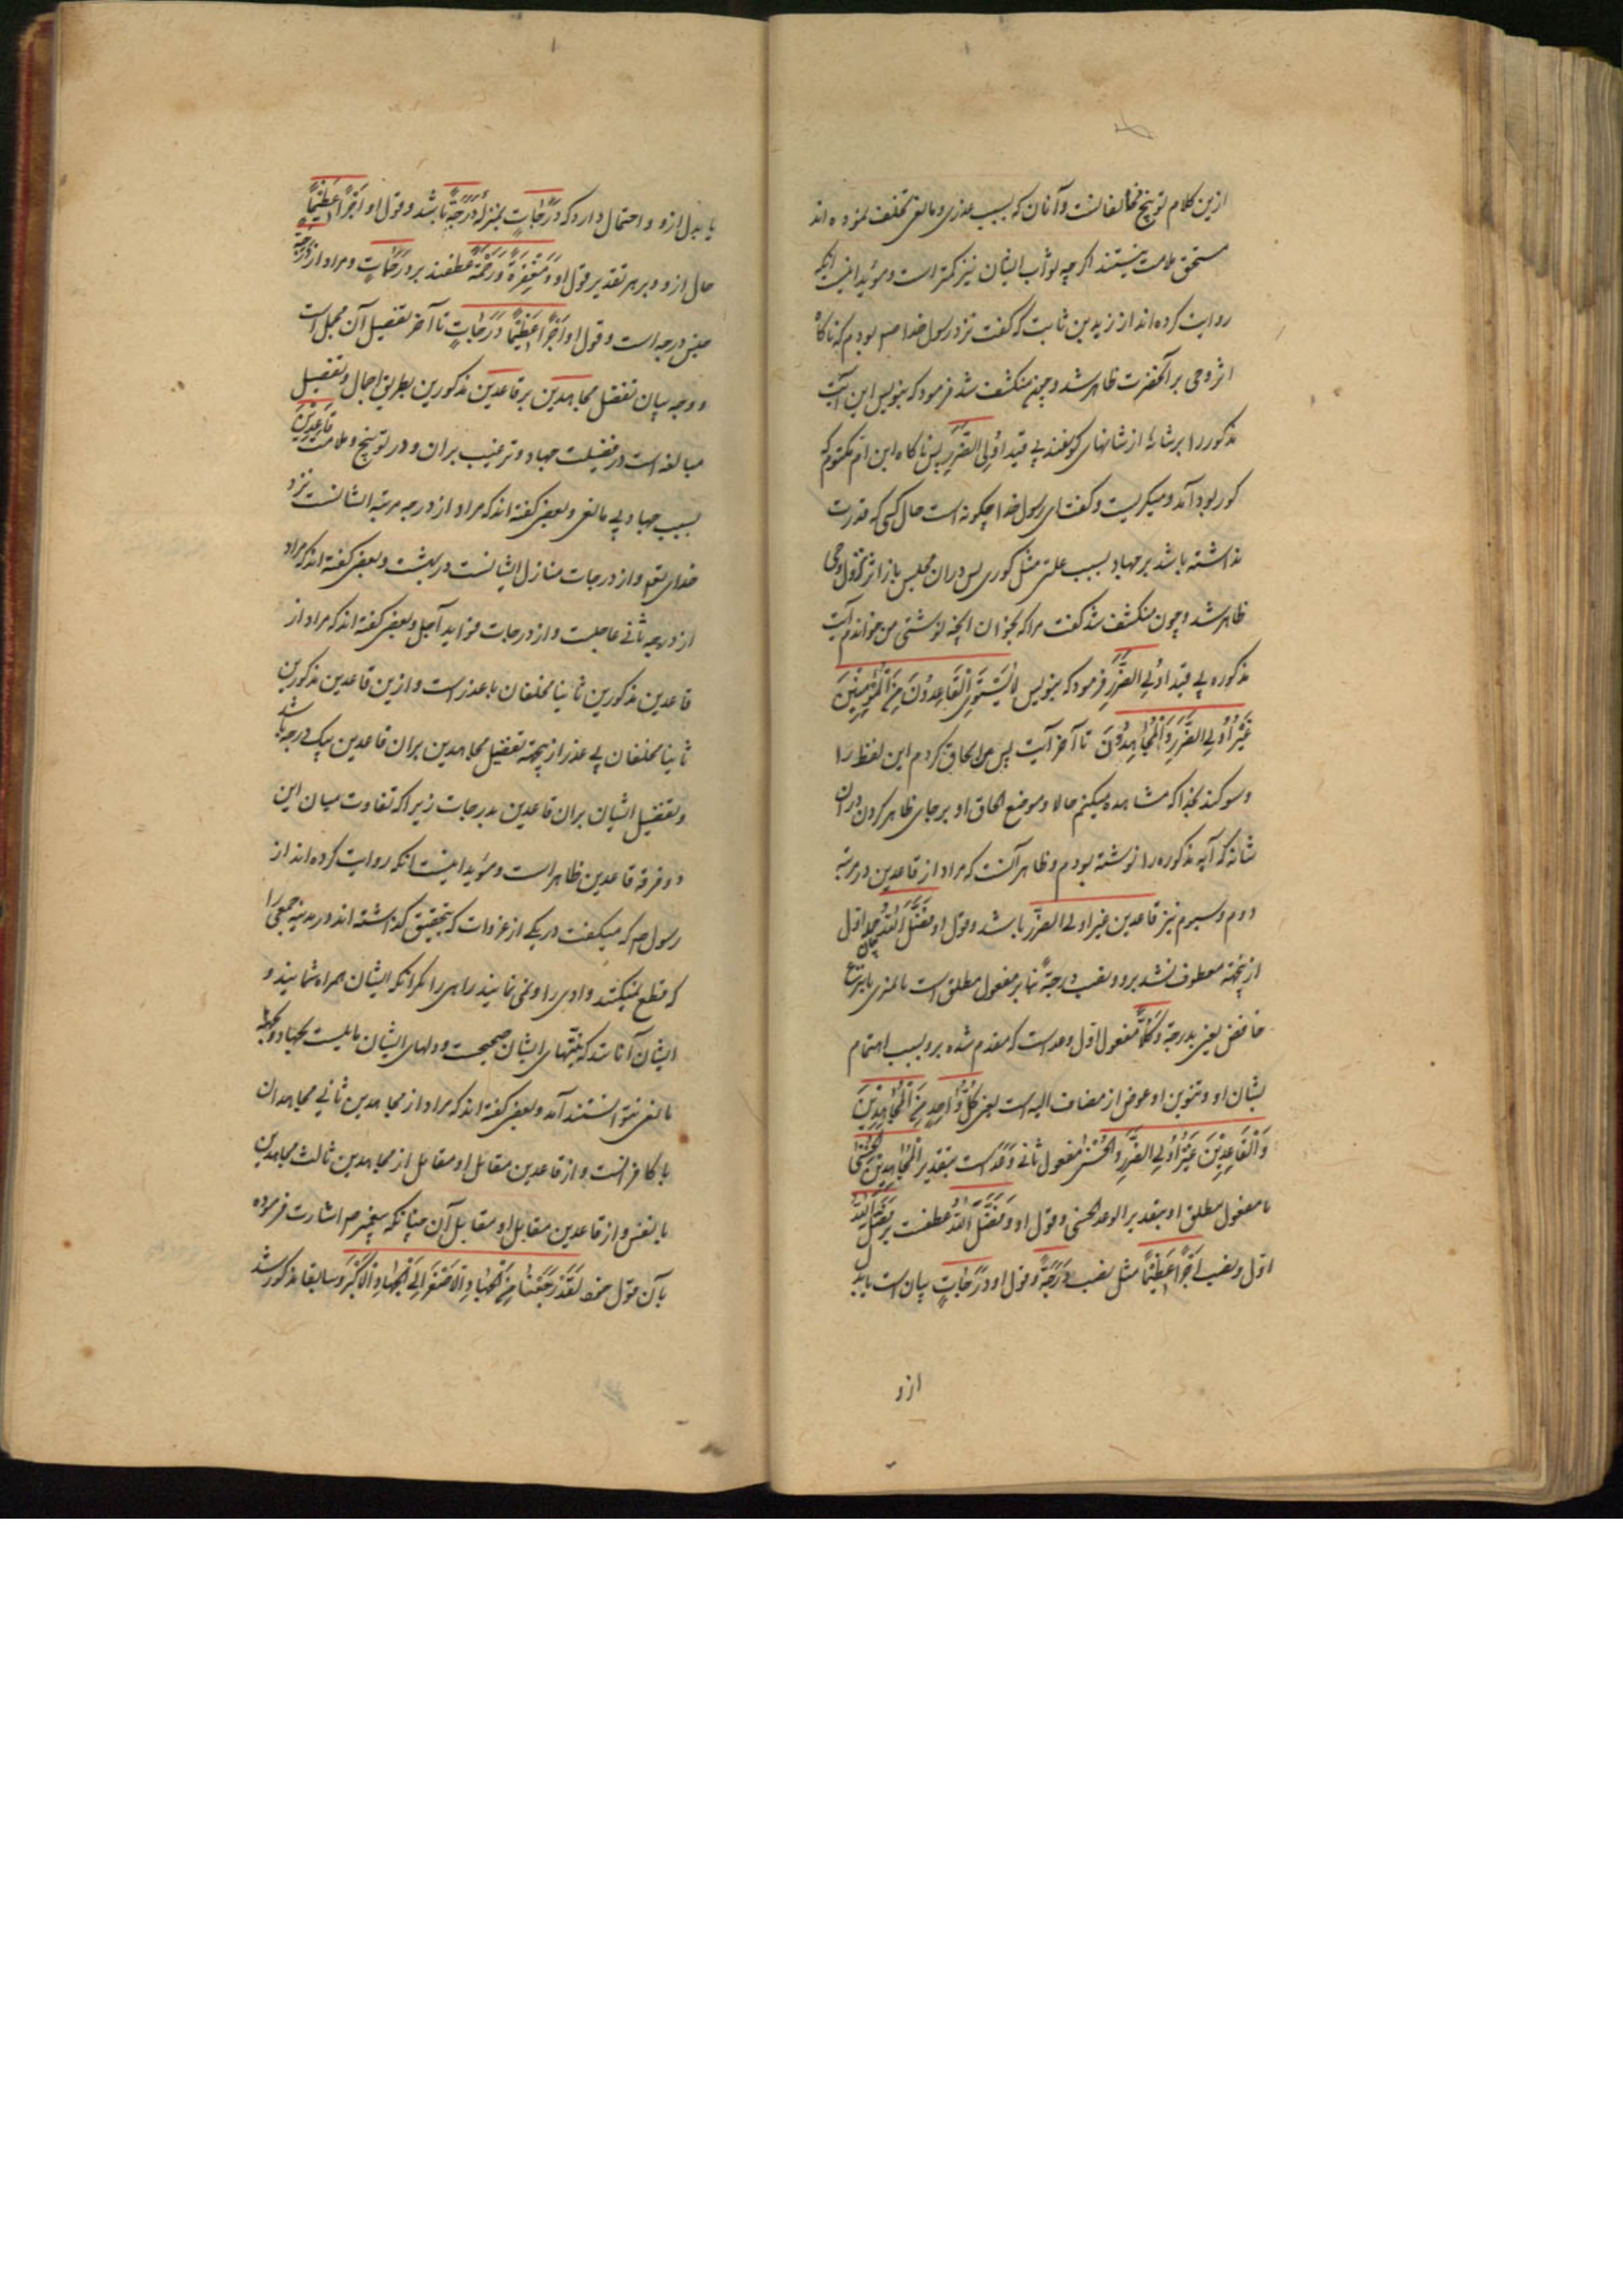 ازین کلام توبیخ مخالفانست و آنان که بسبب عذری و مانعی تخلف نموده اند
مستحق ملامت نیستند اگرچه ثواب ایشان نیز کمتر است و مؤید اینست آنکه
روایت کرده اند از زید بن ثابت که گفت نزد رسول خدا صم بودم که ناکاه
اثر وحی بر آنحضرت ظاهر شد و چون منکشف شد فرمود که بنویس این آیت
مذکور را بر شانه از شانهای کوسفند بی قید اُولِی الضَّرَرِ پس ناکاه ابن ام مکتوم که
کور بود آمد و میکریست و گفت ای رسول خدا چکونه است حال کسی که قدرت
نداشته باشد بر جهاد بسبب علتی مثل کوری پس در ان مجلس باز اثر نزول وحی
ظاهر شد و چون منکشف شد گفت مرا که بخوان آنچه نوشتی من خواندم آیت
مذکوره بی قید اُولِی الضَّرَرِ فرمود که بنویس لَا یَسْتَوِی الْقَاعِدُونَ مِنَ الْمُؤْمِنِینَ
غَیْرُ اُولِی الضَّرَرِ وَالْمُجَاهِدُونَ تا آخر آیت پس من الحاق کردم این لفظ را
و سوکند بخدا که مشاهده میکنم حالا موضع الحاق او بر جای ظاهر کردن در ان
شانه که آیه مذکوره را نوشته بودم و ظاهر آنست که مراد از قاعدین در مرتبه
دوم و سیوم نیز قاعدین غیر اولی الضرر باشد و قول او فَضَّلَ اللهُ بیان جمله اول
ازینجهة معطوف نشد برو و نصب درجةً بنا بر مفعول مطلق است یا بنزع
خافض یعنی بدرجة و کُلًّا مفعول اول وعد است که مقدم شده برو بسبب اهتمام
بشان او و تنوین او عوض از مضاف الیه است یعنی کُلَّ وَاحِدٍ مِنَ الْمُجَاهِدِینَ
وَالْقَاعِدِینَ غَیْرُ اُولِی الضَّرَرِ وَالْحُسْنَی مفعول ثانی وَعَدَ است بتقدیر الْمُجَاهِدِینَ الحُسْنَی
یا مفعول مطلق او بتقدیر الوعد الحسنی و قول او وَ فَضَّلَ اللهُ عطفست بر فَضَّلَ اللهُ
اول و نصب اَجْرًا عَظِیمًا مثل نصب دَرَجَةً و قول او دَرَجَاتٍ بیان است یا بدل
ازو
یا بدل ازو و احتمال دارد که دَرَجَاتٍ بمنزله دَرَجَةً باشد و قول او اَجْرًا عَظِیمًا
حال ازو و بر هر تقدیر قول او وَ مَغْفِرَةً وَ رَحْمَةً عطفند بر دَرَجَاتٍ و مراد از دَرَجَةً
جنس درجه است و قول او اَجْرًا عَظِیمًا دَرَجَاتٍ تا آخر تفصیل آن مجمل است
و وجه بیان تفضل مجاهدین بر قاعدین مذکورین بطریق اجمال و تفصیل
مبالغه است در فضیلت جهاد و ترغیب بران و در توبیخ و ملامت قاعدین
بسبب جهاد بی مانعی و بعضی کفته اند که مراد از درجه مرتبه ایشانست نزد
خدای تع و از درجات منازل ایشانست در بهشت و بعضی کفته اند که مراد
از درجه ثانی عاجلست و از درجات فواید آجل و بعضی کفته اند که مراد از
قاعدین مذکورین ثانیا مخلفان با عذر است و ازین قاعدین مذکورین
ثانیا مخلفان بی عذر ازینجهة تفضیل مجاهدین بران قاعدین بیک درجه باشد
و تفضیل ایشان بران قاعدین بدرجات زیرا که تفاوت میان این
دو فرقه قاعدین ظاهر است و مؤید اینست انکه روایت کرده اند از
رسول صم که میکفت در یکی از غزوات که بتحقیق کذاشته اند در مدینه جمعی را
که قطع نمیکنند وادی را و نمی نمایند راهی را مکر انکه ایشان همراه شمایند و
ایشان آنانند که نیتهای ایشان صحیحست و دلهای ایشان مایلست بجهاد و بجهة
مانعی نتوانستند آمد و بعضی کفته اند که مراد از مجاهدین ثانی مجاهدان
با کافرانست و از قاعدین مقابل او مقابل از مجاهدین ثالث مجاهدین
با نفس و از قاعدین مقابل او مقابل آن چنانکه پیغمبر صم اشارت فرموده
بآن قول خود لَقَدْ رَجَعْنَا مِنَ الْجِهَادِ الْاَصْغَرِ اِلَی الْجِهَادِ الْاَکْبَرِ و سابقا مذکور شد